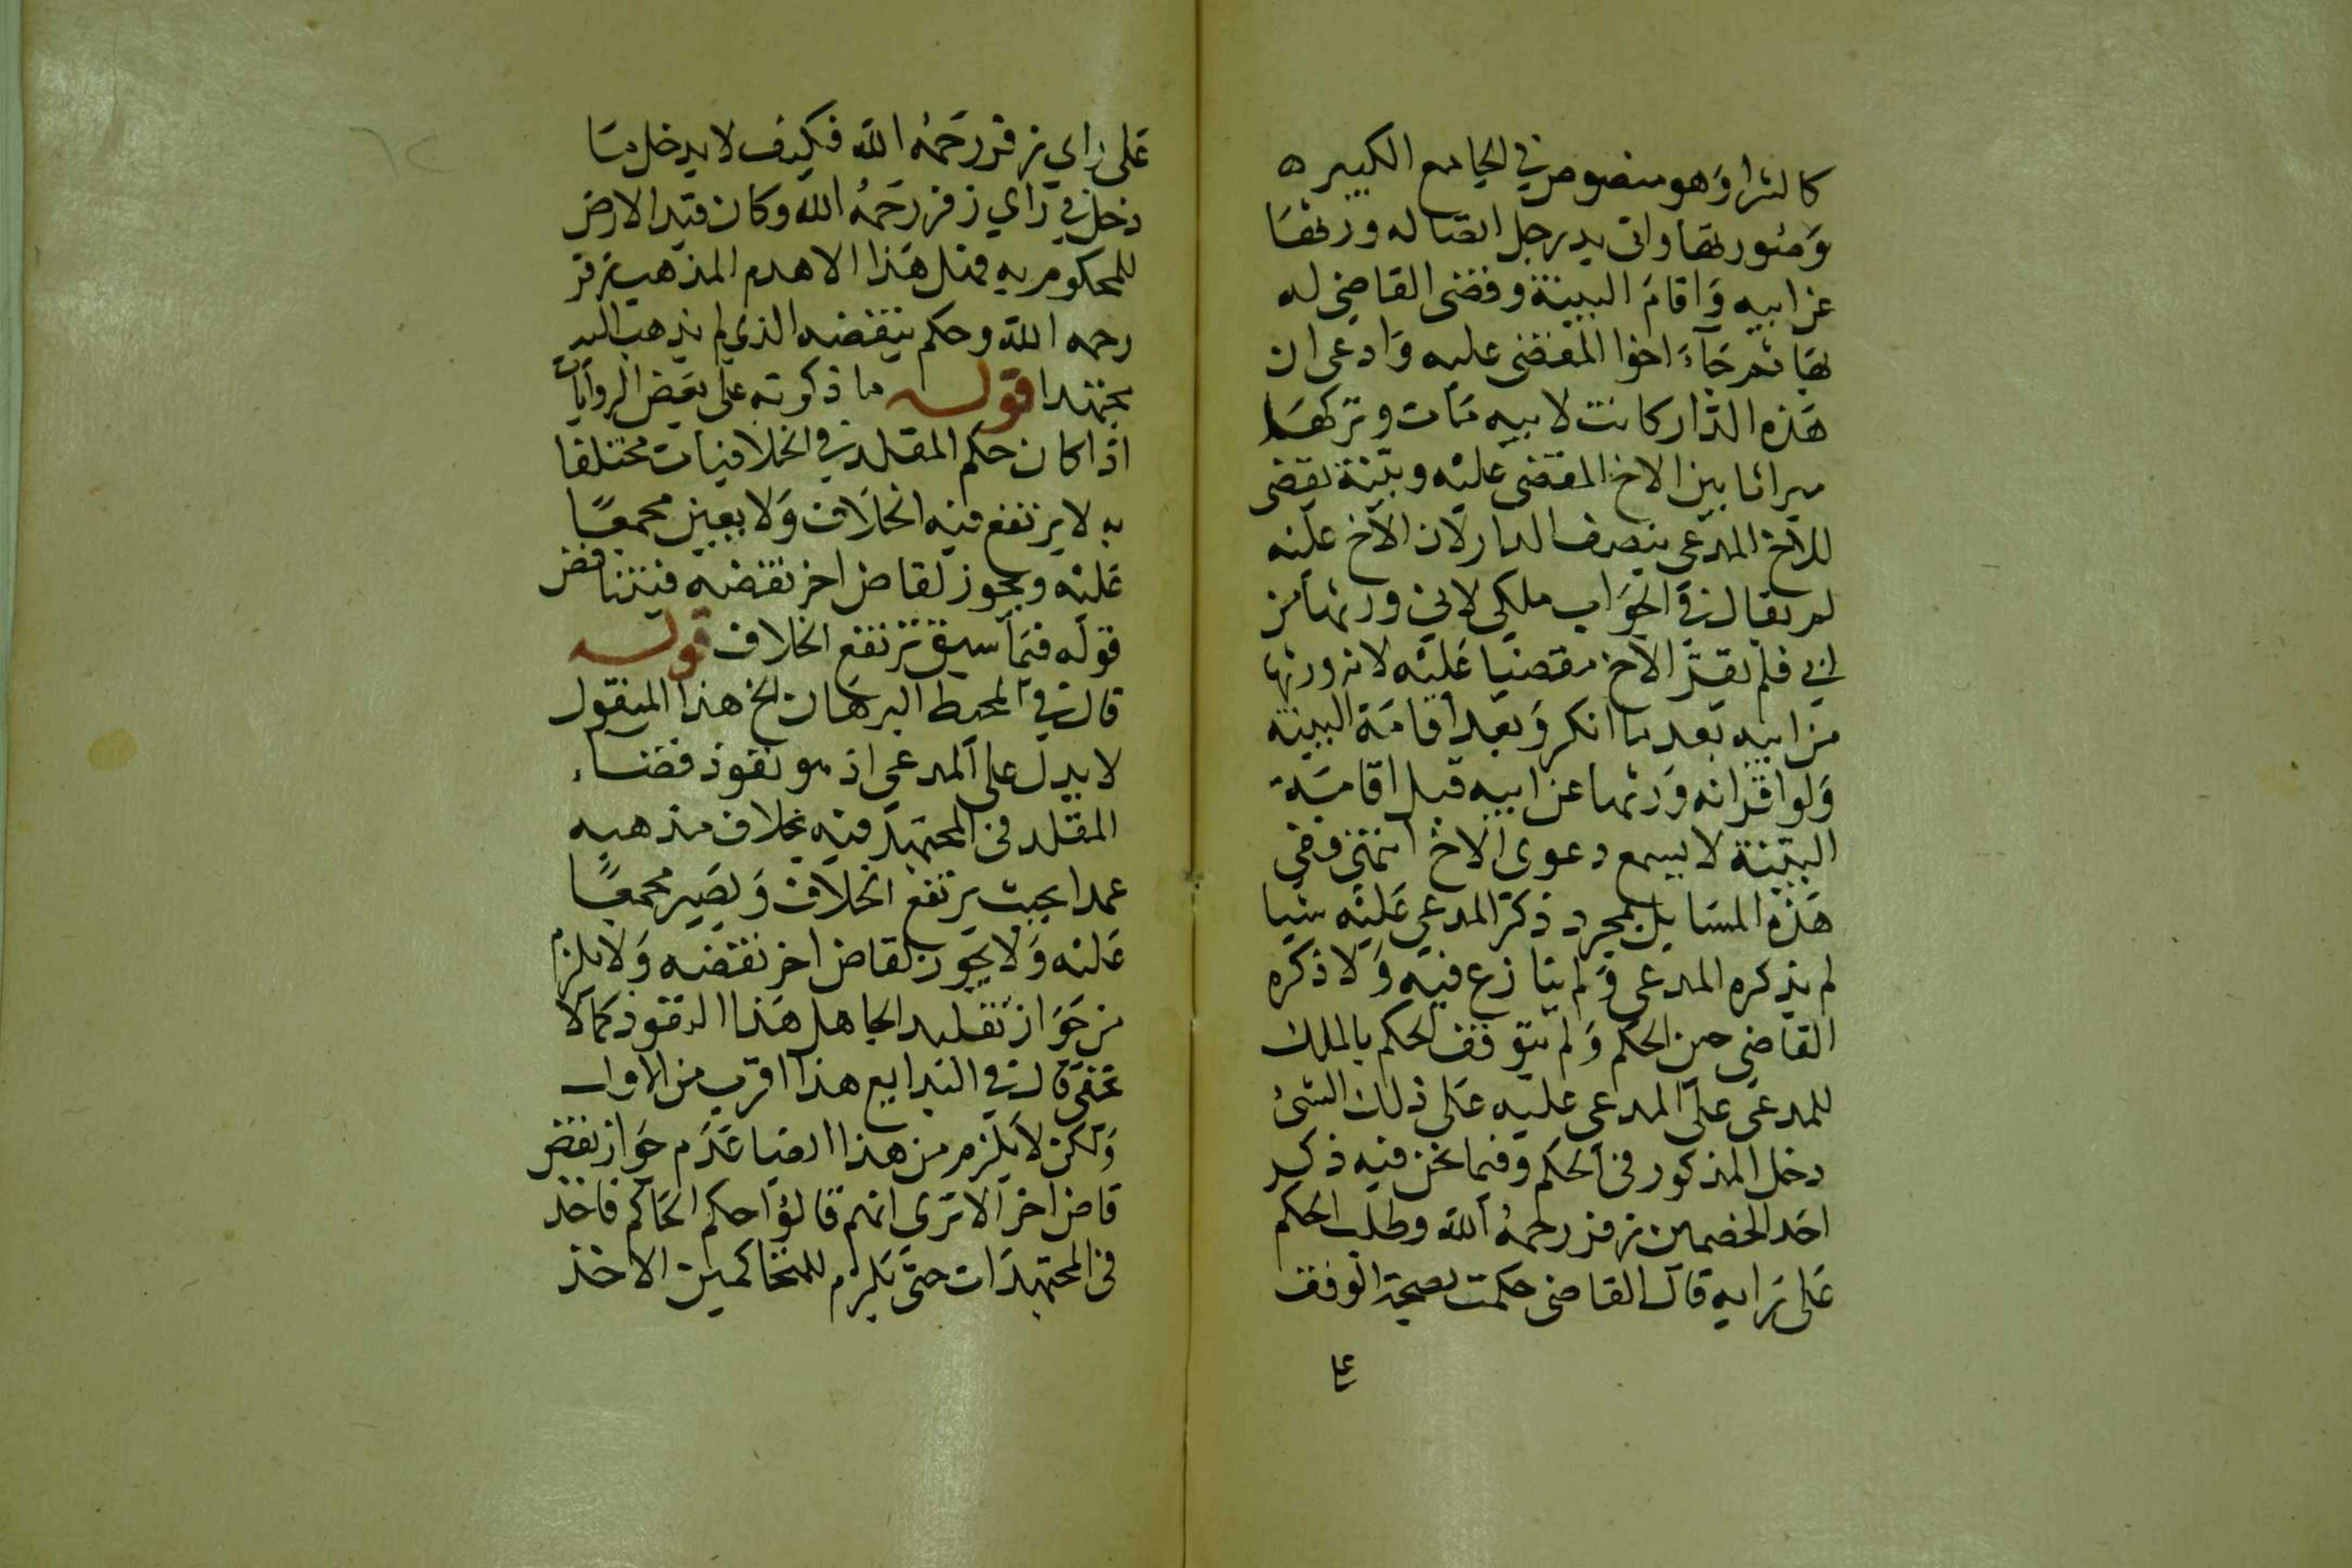 كالشرا وَهو منصوص في الجامع الكبير ه
وَصورتها دار في يد رجل ادعى انها له ورثها
عن ابيه وَاقامَ البينة وقضى القاضي له
بها ثم جَاءَ اخوا المقضى عليه وَادعى ان
هَذه الدّار كانت لابيه مَات وتركهَا
ميراثا بين الاخ المقضى عليْه وبيّنة يقضى
للاخ المدعى بنصف الدار لان الاخ عليْه
لم يقال في الجوَاب ملكي لاني ورثتها من
ابي فلم يقر الاخ مقضيا عَليْه لانه ورثها
من ابيه بَعد ما انكر وَبعد اقامَة البينة
وَلو اقر انه وَرثها عن ابيه قبل اقامَة
البيّنة لا يسمع دعوى الاخ انتهى ففي
هَذه المسَايل بمجرد ذكر المدعي عَليْه شيا
لم يذكره المدعى وَلم ينازع فيه وَلا ذكره
القاضى حين الحكم وَلم يتوقف الحكم بالملك
للمدعى على المدعى عليه عَلى ذلك الشئ
دخل المذكور فى الحكم وفيما نحن فيه ذكر
احَد الخصمين زفر رحمهُ الله وطلب الحكم
عَلى رَايه قال القاضى حكمت بصحة الوقف
على
عَلى رَاي زفر رَحمُه الله فكيف لا يدخل مَا
دخل في رَاي زفر رحَمهُ الله وكان قيد الارض
للمحكوم به فمثل هَذا الا هدم المذهب زفر
رحمه الله وحكم بنقضه الذي لم يذهب اليه
مجتهد اقوله ما ذكرته على بعَض الروَايات
اذا كان حكم المقلد في الخلافيات مختلفا
به لا يرتفع فيه الخلاَف وَلا يعين مجمعًا
عَليْه ويجوز لقاض اخر نقضه فيتناقض
قوله فيمَا سبق يرتفع الخلاف قوله
قال في المحيط البرهَان الخ هذا المنقول
لا يدل على المدعي اذ هو نفوذ قضاء
المقلد فى المجتهد فيْه بخلاف مذهبه
عمدا بحيث يرتفع الخلاف وَيصَير مجمعًا
عَليْه وَلا يجَوز لقاض اخر نقضه وَلا يلزم
من جَوَاز تقليد الجاهل هَذا النفوذ كمالا
يخفى قال في البدايع هذا اقرب من الاول
وَلكن لا يلزم من هذا ايضا عَدَم جوَاز نقض
قاض اخر الا ترى انهم قالوُا حكم الحَاكم فاخذ
فى المجتهدَات حتى يلزم للمتحاكمين الاخذ